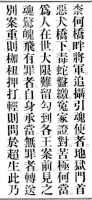 柰何橋畔將軍追攝引魂使者地獄門首
惡犬橋下毒蛇盤繳冤家證對苦極何當
爲人在世大限難留勾到各王案前見之
魂驚魄飛有罪者自承當無罪者轉送
別案重則枷杻押打輕則問於超生此乃